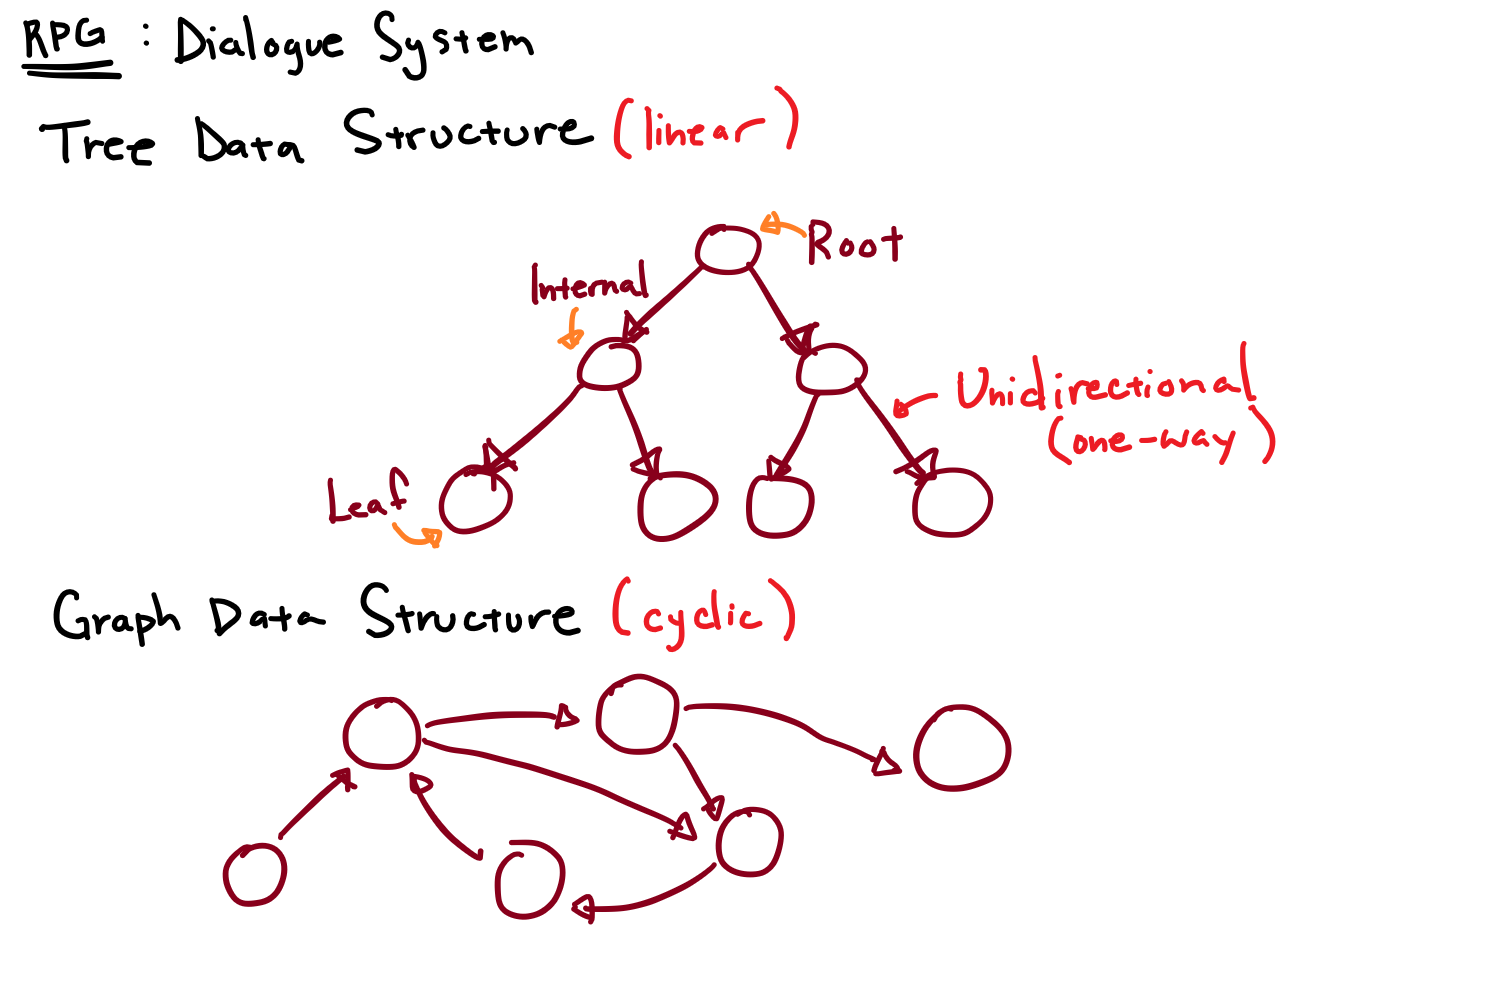 RPG : Dialogue System
Tree Data Structure (linear)
Root
Internal
Unidirectional
(one-way)
Leaf
Graph Data Structure (cyclic)